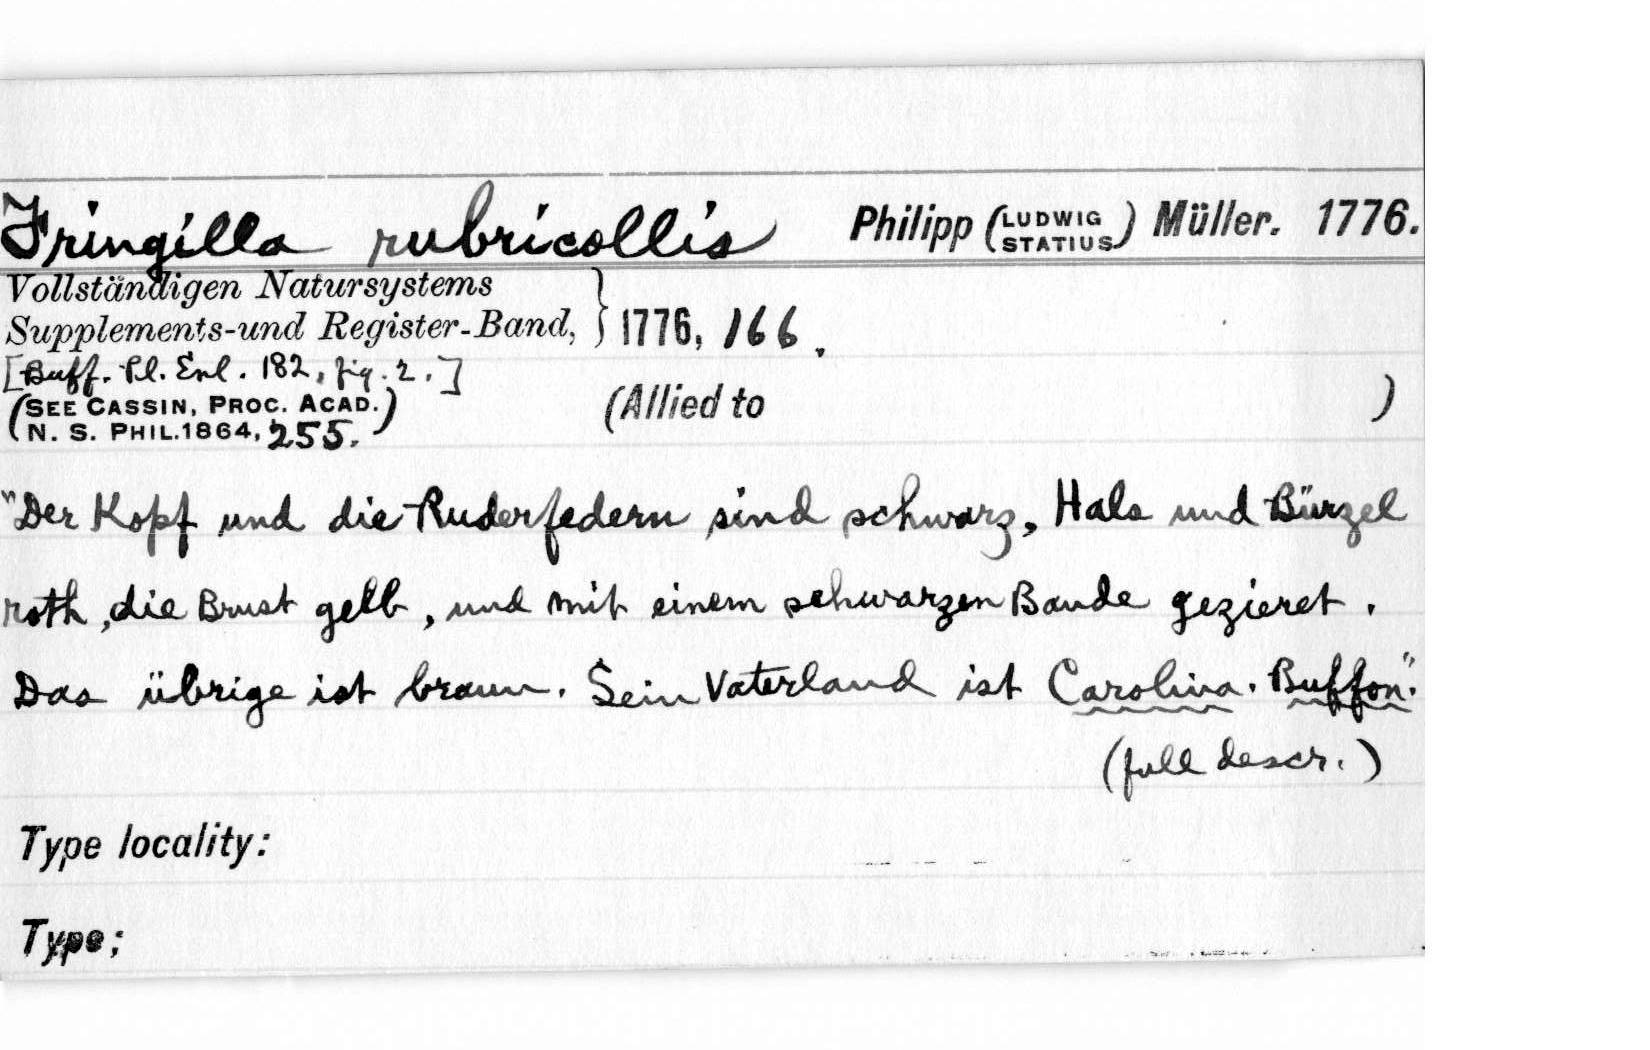 Fringilla rubricollis Philipp (LUDWIG STATIUS) Müller. 1776.
Vollständigen Natursystems
Supplements-und Register-Band, } 1776, 166.
[Buff. Pl. Enl. 182, fig. 2.]
(SEE CASSIN, PROC. ACAD.
N. S. PHIL. 1864, 255.)
(Allied to )
"Der Kopf und die Ruderfedern sind schwarz, Hals und Bürzel
roth, die Brust gelb, und mit einem schwarzen Bande gezieret.
Das übrige ist braun. Sein Vaterland ist Carolina. Buffon."
(full descr.)
Type locality:
Type;